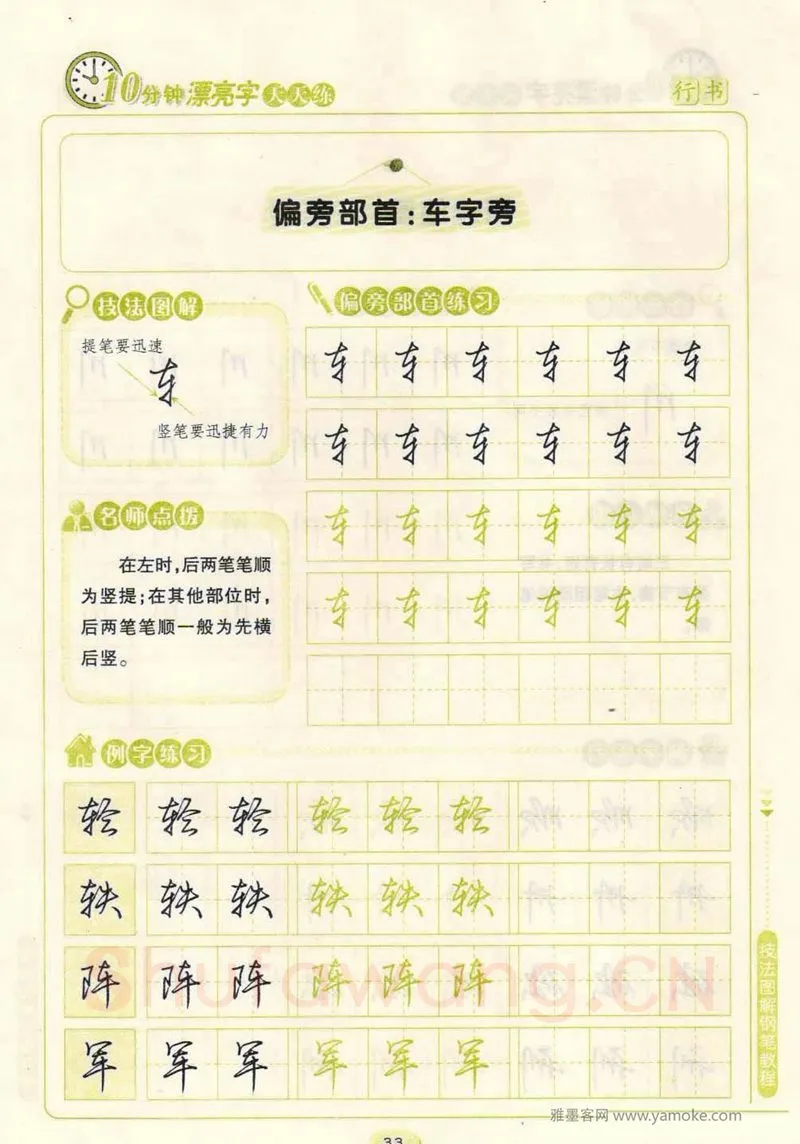 10分钟漂亮字天天练
行书
偏旁部首:车字旁
技法图解
提笔要迅速
车
竖笔要迅捷有力
名师点拨
在左时,后两笔笔顺
为竖提;在其他部位时,
后两笔笔顺一般为先横
后竖。
偏旁部首练习
车 车 车 车 车 车
车 车 车 车 车 车
车 车 车 车 车 车
车 车 车 车 车 车
例字练习
轮 轮 轮 轮 轮 轮
轶 轶 轶 轶 轶 轶
阵 阵 阵 阵 阵 阵
军 军 军 军 军 军
Shufawang.CN
技法图解钢笔教程
雅墨客网 www.yamoke.com
33